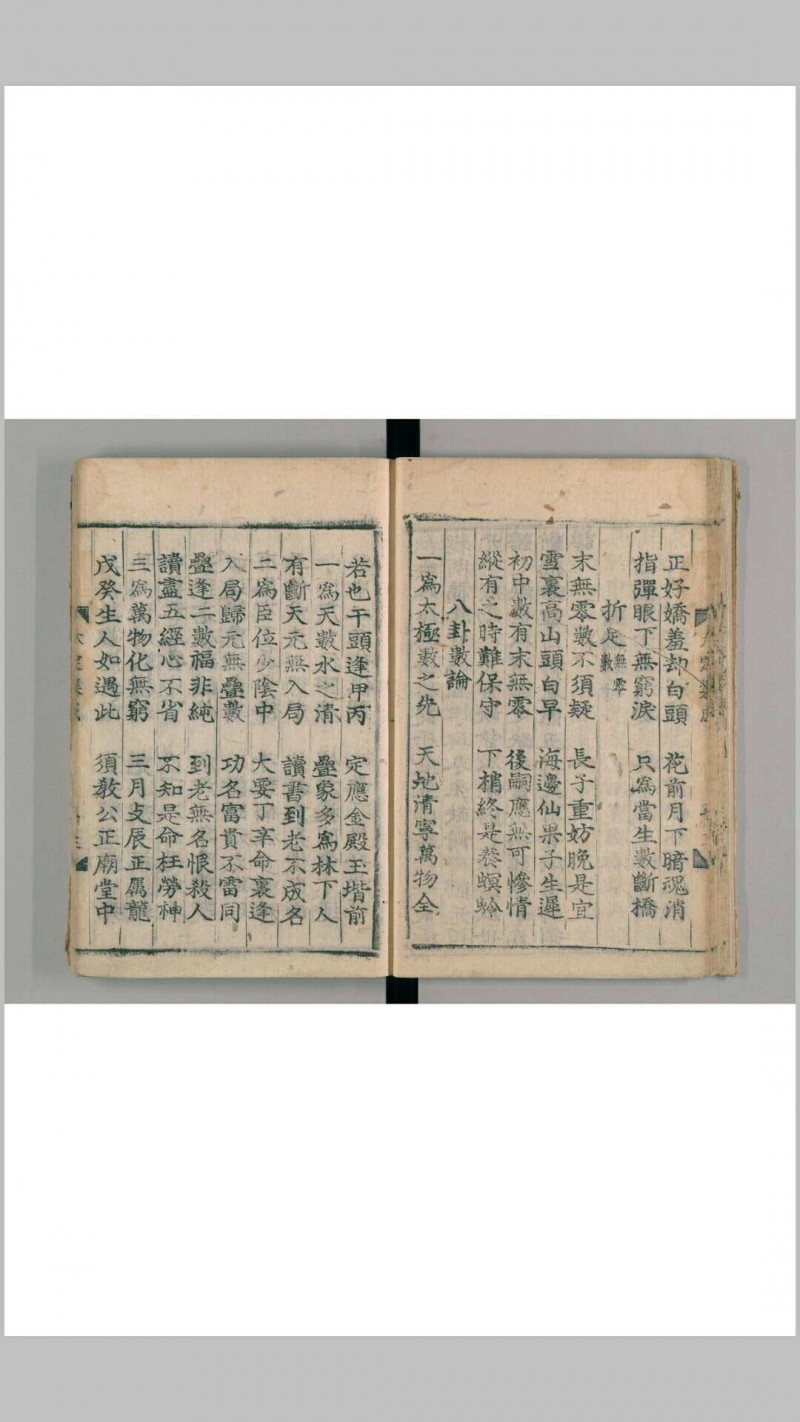 正好嬌羞却白頭　花前月下暗魂消
指彈眼下無窮淚　只為當生數斷橋
折足數無零
末無零數不須疑　長子重妨晚是宜
雪裏高山頭白早　海邊仙果子生遲
初中數有末無零　後嗣應無可慘情
縱有之時難保守　下梢終是養螟蛉
八卦數論
一為太極數之先　天地清寧萬物全
若也干頭逢甲丙　定應金殿玉堦前
一為天數水之清　疊象多為林下人
有斷天元無入局　讀書到老不成名
二為臣位少陰中　大要丁辛命裏逢
入局歸元無疊數　功名富貴不雷同
疊逢二數福非純　到老無名恨殺人
讀盡五經心不省　不知是命枉勞神
三為萬物化無窮　三月建辰正属龍
戊癸生人如遇此　須教公正廟堂中